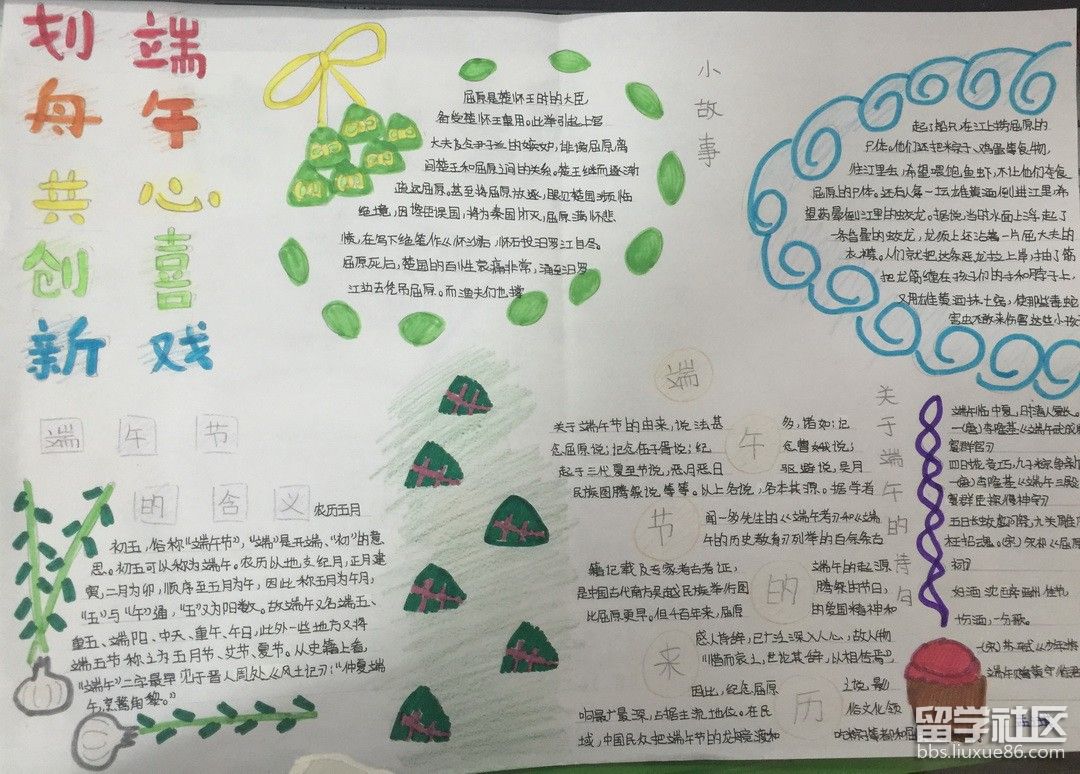 端午心喜戏
划舟共创新
小故事
屈原是楚怀王时的大臣,
备受楚怀王重用。此举引起上官
大夫及令子兰的嫉妒,诽谤屈原,离
间楚王和屈原之间的关系。楚王继而逐渐
疏远屈原。甚至将屈原放逐,眼见楚国濒临
绝境,因馋臣误国,将为秦国所灭,屈原满怀悲
愤,在写下绝笔作《怀沙》后,怀石投汨罗江自尽。
屈原死后,楚国的百姓哀痛非常,涌至汨罗
江边去凭吊屈原。而渔夫们也撑
起了船只,在江上捞屈原的
尸体。他们还把粽子、鸡蛋等食物,
往江里丢,希望喂饱鱼虾,不让他们吞食
屈原的尸体。还有人拿一坛雄黄酒倒进江里,希
望药晕倒江里的蛟龙。据说,当时水面上浮起了
一条昏晕的蛟龙,龙须上还沾着一片屈大夫的
衣襟。人们就把这条恶龙拉上岸,抽了筋
把龙筋缠在孩子们的手和脖子上,
又用雄黄酒抹七窍,使那些毒蛇
害虫不敢来伤害这些小孩
端午节
的含义
农历五月
初五,俗称“端午节”,“端”是开端、“初”的意
思。初五可以称为端午。农历以地支纪月,正月建
寅,二月为卯,顺序至五月为午,因此称五月为午月,
“五”与“午”通,“五”又为阳数。故端午又名端五、
重五、端阳、中天、重午、午日,此外一些地方又将
端五节称之为五月节、艾节、夏节。从史籍上看,
“端午”二字最早见于晋人周处《风土记》:“仲夏端
午,烹鶩角黎。”
端午节的来历
关于端午节的由来,说法甚多,诸如:纪
念屈原说;纪念伍子胥说;纪念曹娥说;
起于三代夏至节说;恶月恶日驱避说,吴月
民族图腾祭说等等。以上各说,各本其源。据学者
闻一多先生的《端午考》和《端
午的历史教育》列举的百余条古
籍记载及专家考古考证,端午的起源
是中国古代南方吴越民族举行图腾祭的节日,
比屈原更早。但千百年来,屈原的爱国精神和
感人诗辞,已广泛深入人心,故人们
“惜而哀之,世论其辞,以相传焉”,
因此,纪念屈原之说,影
响最广最深,占据主流地位。在民俗文化领
域,中国民众把端午节的龙舟竞渡和吃粽子等都和
关于端午的诗句
端午临中夏,时清人复长。
留学社区
bbs.liuxue86.com